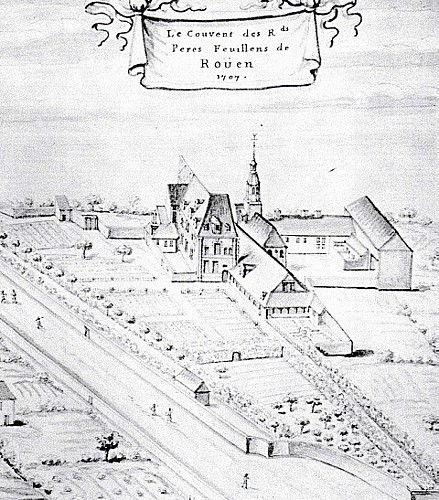 Le Couvent des R.ds
Peres Feuillens de
Roüen
1707.